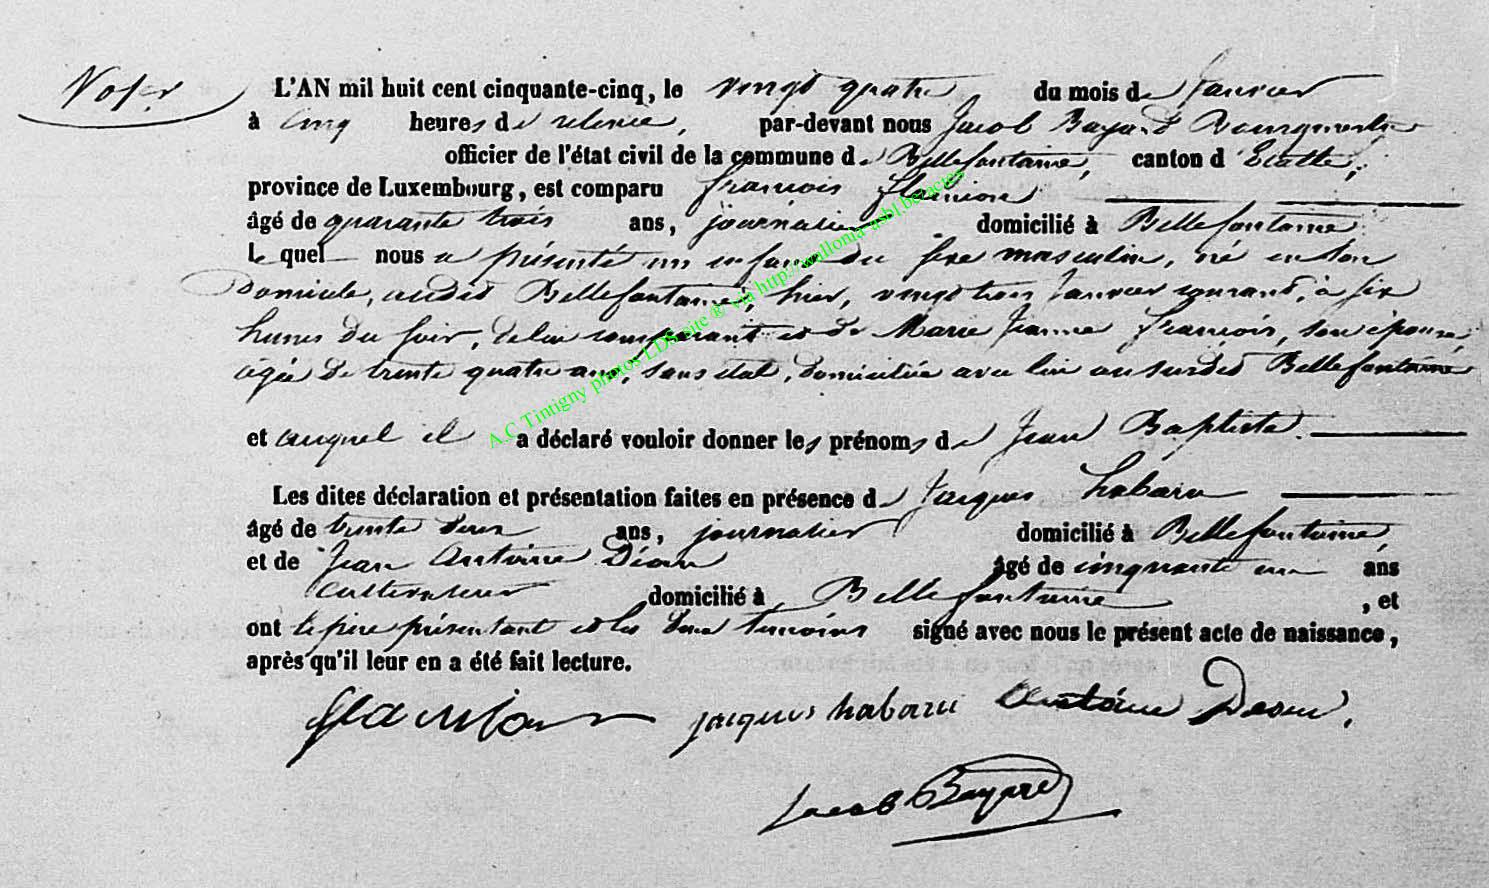 L'AN mil huit cent cinquante-cinq, le vingt quatre du mois de Janvier
à cinq heures de relevée, par-devant nous Jacob Bayard Bourgmestre
officier de l'état civil de la commune de Bellefontaine, canton d'Etalle,
province de Luxembourg, est comparu françois
âgé de quarante trois ans, journalier domicilié à Bellefontaine
Le quel nous a présenté un enfant du sexe masculin, né en son
Domicile, audit Bellefontaine, hier, vingt trois Janvier courant, à six
heures du soir, de lui comparant et de Marie Jeanne françois, son épouse,
âgée de trente quatre ans, sans état, domiciliée avec lui au susdit Bellefontaine
et auquel il a déclaré vouloir donner les prénoms de Jean Baptiste
Les dites déclaration et présentation faites en présence de Jacques habaru
âgé de trente deux ans, journalier domicilié à Bellefontaine,
et de Jean Antoine âgé de cinquante un ans
cultivateur domicilié à Bellefontaine, et
ont le père présentant et les deux témoins signé avec nous le présent acte de naissance,
après qu'il leur en a été fait lecture.
jacques habaru Antoine
Jacob Bayard
A.C Tintigny photos LDS site ® via http://wallonia-asbl.be/actes